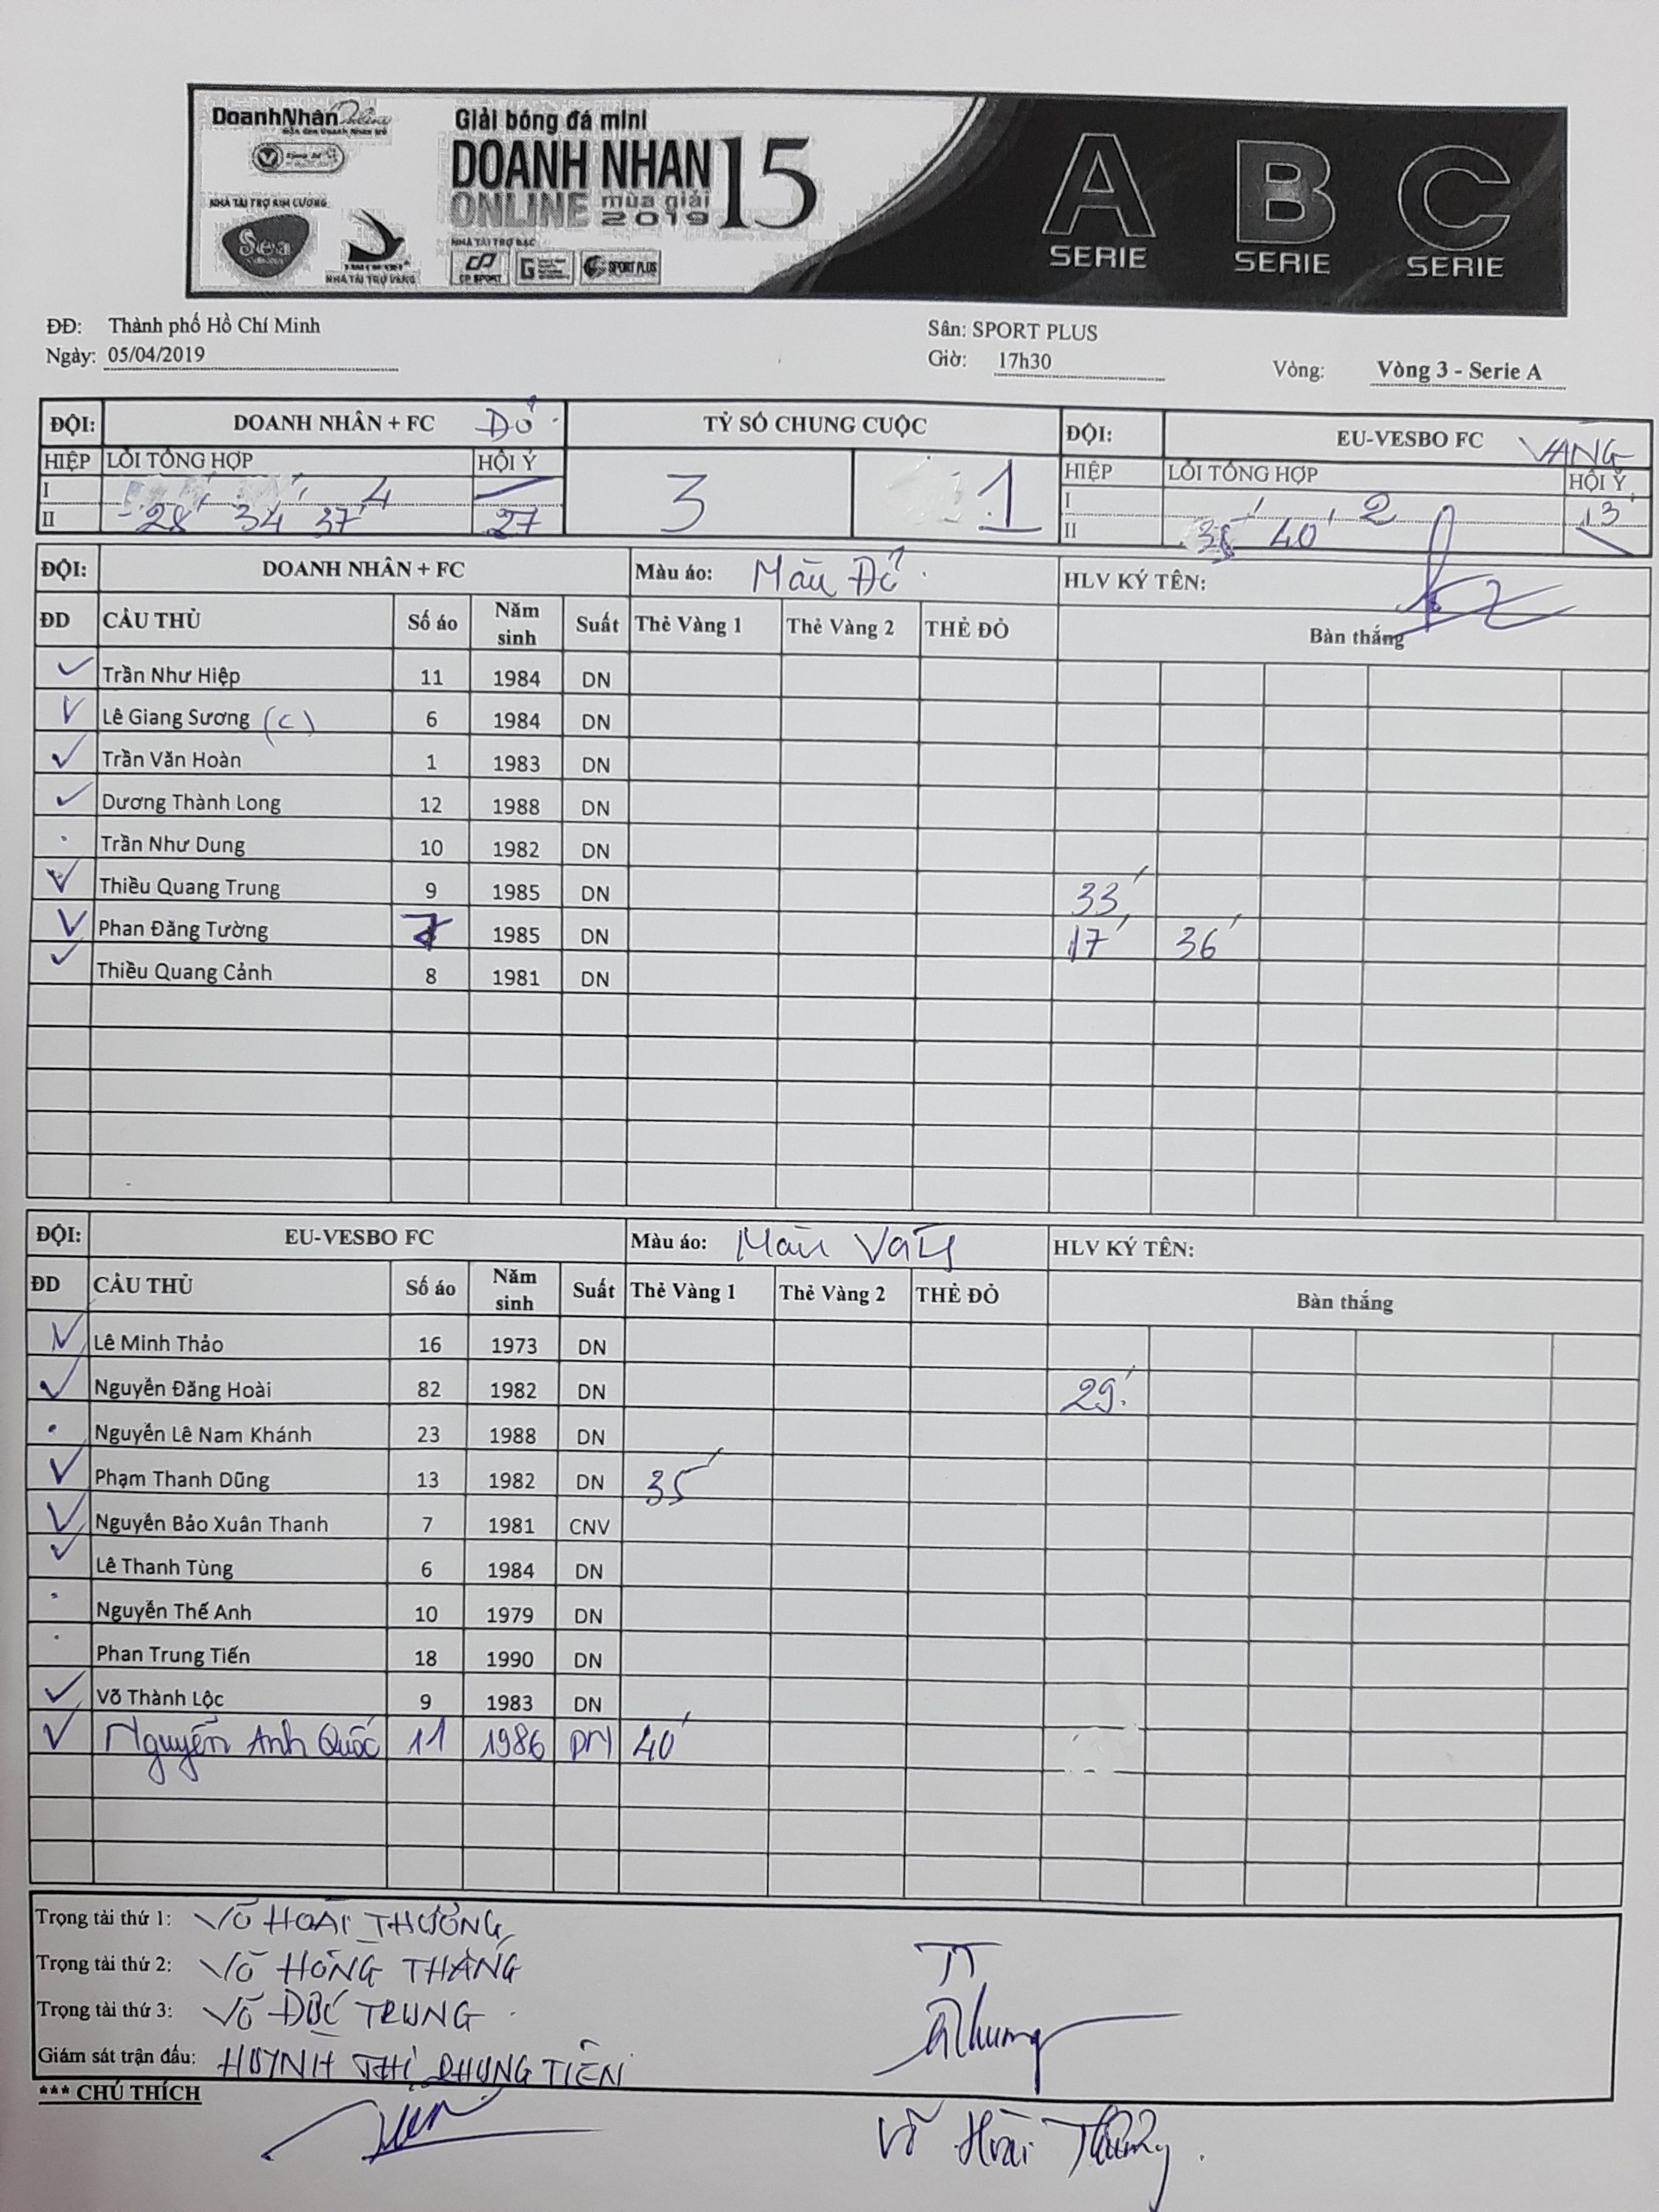 DoanhNhân Online
Sân chơi Doanh Nhân trẻ
Giải bóng đá mini
DOANH NHÂN 15
ONLINE mùa giải 2019
NHÀ TÀI TRỢ KIM CƯƠNG
Sea
NHÀ TÀI TRỢ VÀNG
NHÀ TÀI TRỢ BẠC
CP SPORT
SPORT PLUS
A SERIE B SERIE C SERIE
ĐĐ: Thành phố Hồ Chí Minh Sân: SPORT PLUS
Ngày: 05/04/2019 Giờ: 17h30 Vòng: Vòng 3 - Serie A
ĐỘI: DOANH NHÂN + FC ĐỎ TỶ SỐ CHUNG CUỘC ĐỘI: EU-VESBO FC VANG
HIỆP LỖI TỔNG HỢP HỘI Ý 3 1 HIỆP LỖI TỔNG HỢP HỘI Ý
I 4 I 2 13'
II 28' 34' 37' 27 II 40'
ĐỘI: DOANH NHÂN + FC Màu áo: Màu Đỏ HLV KÝ TÊN:
ĐD CẦU THỦ Số áo Năm sinh Suất Thẻ Vàng 1 Thẻ Vàng 2 THẺ ĐỎ Bàn thắng
Trần Như Hiệp 11 1984 DN
Lê Giang Sương (C) 6 1984 DN
Trần Văn Hoàn 1 1983 DN
Dương Thành Long 12 1988 DN
Trần Như Dung 10 1982 DN
Thiều Quang Trung 9 1985 DN 33'
Phan Đăng Tường 7 1985 DN 17' 36'
Thiều Quang Cảnh 8 1981 DN
ĐỘI: EU-VESBO FC Màu áo: Màu Vàng HLV KÝ TÊN:
ĐD CẦU THỦ Số áo Năm sinh Suất Thẻ Vàng 1 Thẻ Vàng 2 THẺ ĐỎ Bàn thắng
Lê Minh Thảo 16 1973 DN
Nguyễn Đăng Hoài 82 1982 DN 29'
Nguyễn Lê Nam Khánh 23 1988 DN
Phạm Thanh Dũng 13 1982 DN 35'
Nguyễn Bảo Xuân Thanh 7 1981 CNV
Lê Thanh Tùng 6 1984 DN
Nguyễn Thế Anh 10 1979 DN
Phan Trung Tiến 18 1990 DN
Võ Thành Lộc 9 1983 DN
Nguyễn Anh Quốc 11 1986 DN 40'
Trọng tài thứ 1: VÕ HOÀI THƯỞNG
Trọng tài thứ 2: VÕ HỒNG THẮNG TT
Trọng tài thứ 3: VÕ ĐỨC TRUNG
Giám sát trận đấu: HUỲNH THỊ PHỤNG TIÊN
*** CHÚ THÍCH
Võ Hoài Thưởng